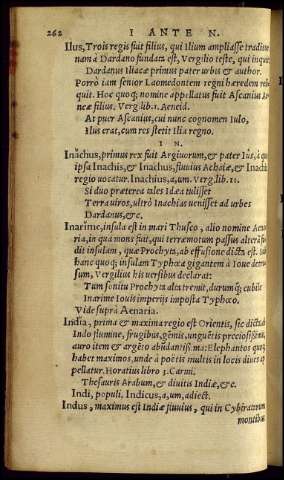 262 I ANTE N.
Ilus, Trois regis fuit filius, qui Ilium ampliasse traditur
nam à Dardano fundata est, Vergilio teste, qui inquit
Dardanus Iliacæ primus pater urbis & author.
Porrò iam senior Laomedontem regni hæredem reli
quit. Hoc quoq; nomine appellatus fuit Ascanius Æ-
neæ filius. Verg. lib. 1. Aeneid.
At puer Ascanius, cui nunc cognomen Iulo,
Ilus erat, cum res stetit Ilia regno.
I N.
Inachus, primus rex fuit Argiuorum, & pater Iûs, à quo
ipsa Inachis, & Inachus, fluuius Achaiæ, & Inachia
regio uocatur. Inachius, a, um. Verg. lib. 11.
Si duo præterea tales Idæa tulisset
Terra uiros, ultrò Inachias uenisset ad urbes
Dardanus, &c.
Inarime, insula est in mari Thusco, alio nomine Aena
ria, in qua mons fuit, qui terræmotum passus alterā
dit insulam, quæ Prochyta, ab effusione dicta est. Sub
hanc quoq; insulam Typhœa gigantem à Ioue
sum, Vergilius his uersibus declarat:
Tum sonitu Prochyta alta tremit, durumq; cubile
Inarime Iouis imperijs imposta Typhœo.
Vide suprà Aenaria.
India, prima & maxima regio est Orientis, sic dicta ab
Indo flumine, frugibus, gēmis, unguētis preciosissimis,
auro item & argēto abūdantiss. ma: Elephantos quoq;
habet maximos, unde à poëtis multis in locis diues ap
pellatur. Horatius libro 3. Carmi.
Thesauris Arabum, & diuitis Indiæ, &c.
Indi, populi, Indicus, a, um, adiect.
Indus, maximus est Indiæ fluuius, qui in Cybiratarum
montibus